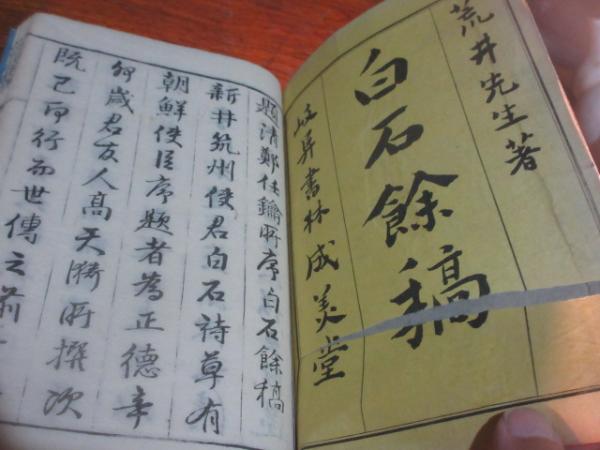 荒井先生著
白石餘稿
岐阜書林成美堂
題清鄭任鑰所序白石餘稿
新井筑州使君白石詩草有
朝鮮使臣序題者為正德辛
卯歲君友人高天漪所撰次
既已印行而世傳之前